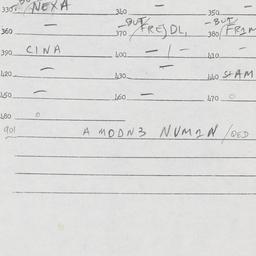 330. NEXA 340 — 350 —
360 — 370 -BUT/FREJDL, 380 -BUT/FRIM
390 CINA 400 — 410 —
420 — 430 — 440 STAM
450 — 460 — 470 0
480 0
901 A MODN3 NUM1N/DED